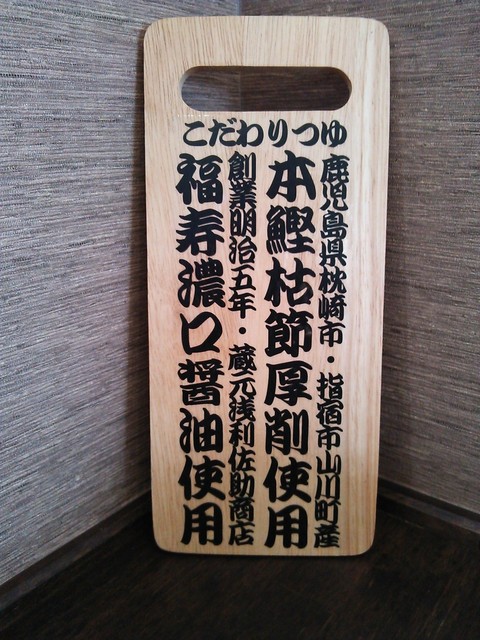 こだわりつゆ
鹿児島県枕崎市・指宿市山川町産
本鰹枯節厚削使用
創業明治五年・蔵元浅利佐助商店
福寿濃口醤油使用